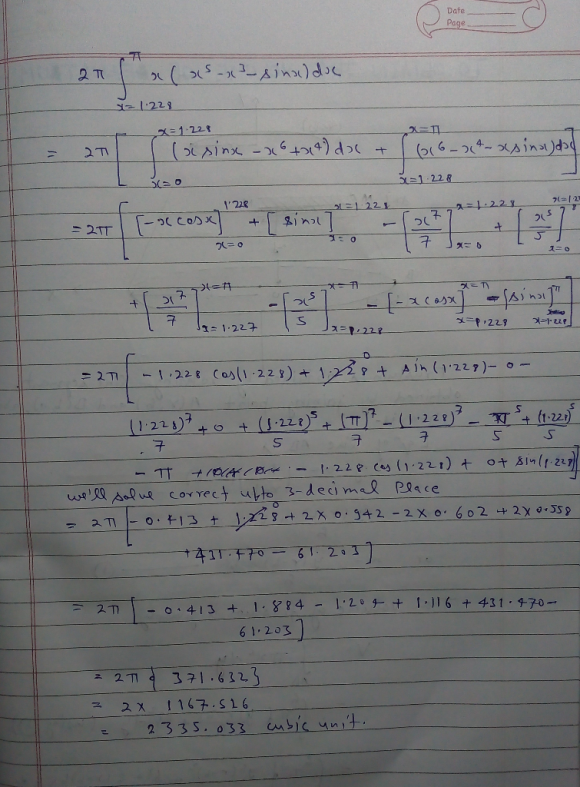 Date
Page
2π ∫_{x=1.228}^{π} x(x⁵-x³-sinx)dx
= 2π [ ∫_{x=0}^{x=1.228} (x sinx - x⁶+x⁴)dx + ∫_{x=1.228}^{x=π} (x⁶-x⁴-xsinx)dx ]
= 2π [ [-x cosx]_{x=0}^{1.228} + [sinx]_{x=0}^{x=1.228} - [x⁷/7]_{x=0}^{x=1.228} + [x⁵/5]_{x=0}^{x=1.228}
+ [x⁷/7]_{x=1.227}^{x=π} - [x⁵/5]_{x=1.228}^{x=π} - [-x cosx]_{x=1.228}^{x=π} - [sinx]_{x=1.228}^{π} ]
= 2π [ -1.228 cos(1.228) + 1.228 0 + sin(1.228) - 0 -
(1.228)⁷/7 + 0 + (1.228)⁵/5 + (π)⁷/7 - (1.228)⁷/7 - π⁵/5 + (1.228)⁵/5
- π - 1.228 cos(1.228) + 0 + sin(1.228) ]
we'll solve correct upto 3-decimal Place
= 2π [ -0.413 + 1.228 0 + 2×0.942 - 2×0.602 + 2×0.558
+431.470 - 61.203 ]
= 2π [ -0.413 + 1.884 - 1.204 + 1.116 + 431.470 -
61.203 ]
= 2π { 371.632 }
= 2× 1167.526
= 2335.033 cubic unit.